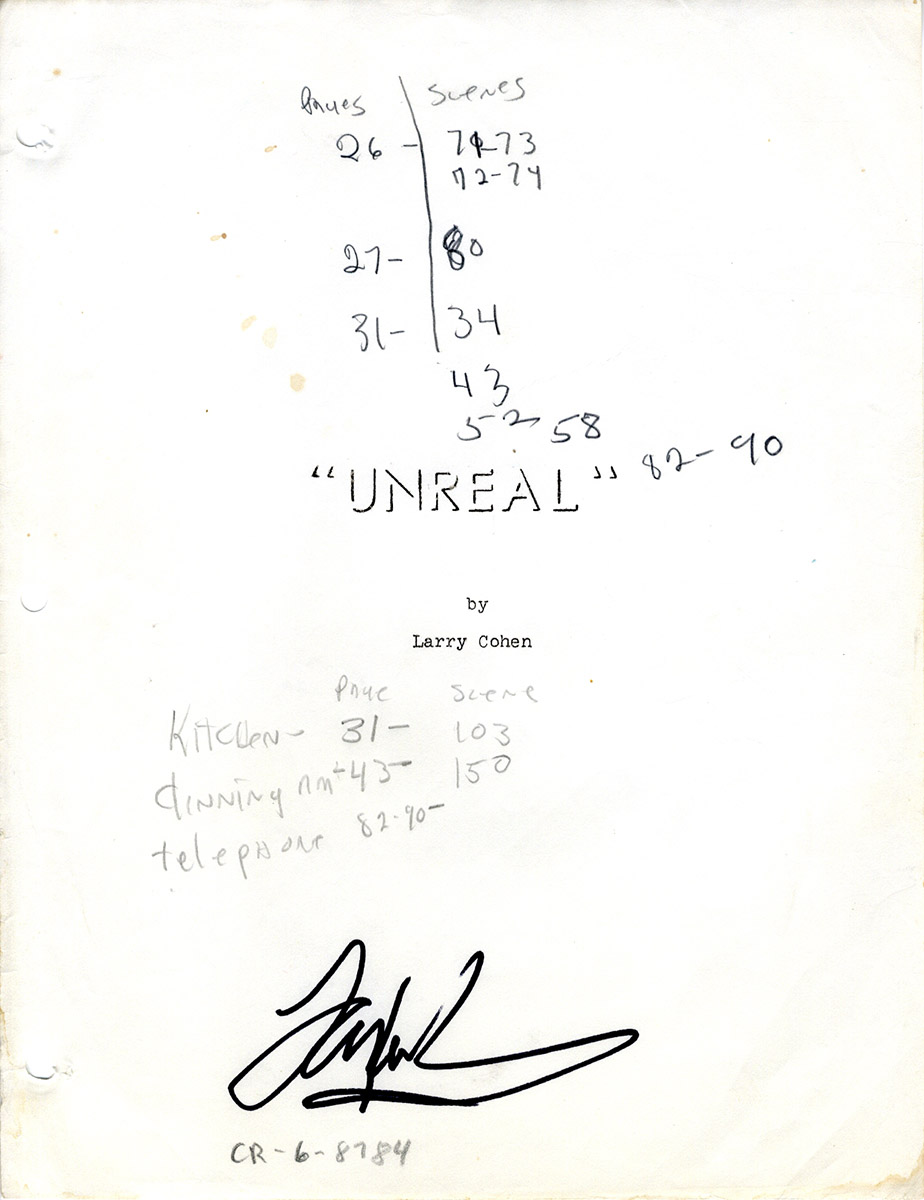 Pages Scenes
26 - 71-73
72-74
27- 80
31- 34
43
52 58
82- 90
“UNREAL”
by
Larry Cohen
Page Scene
Kitchen- 31- 103
dinning rm- 43- 150
telephone 82-90-
CR-6-8784